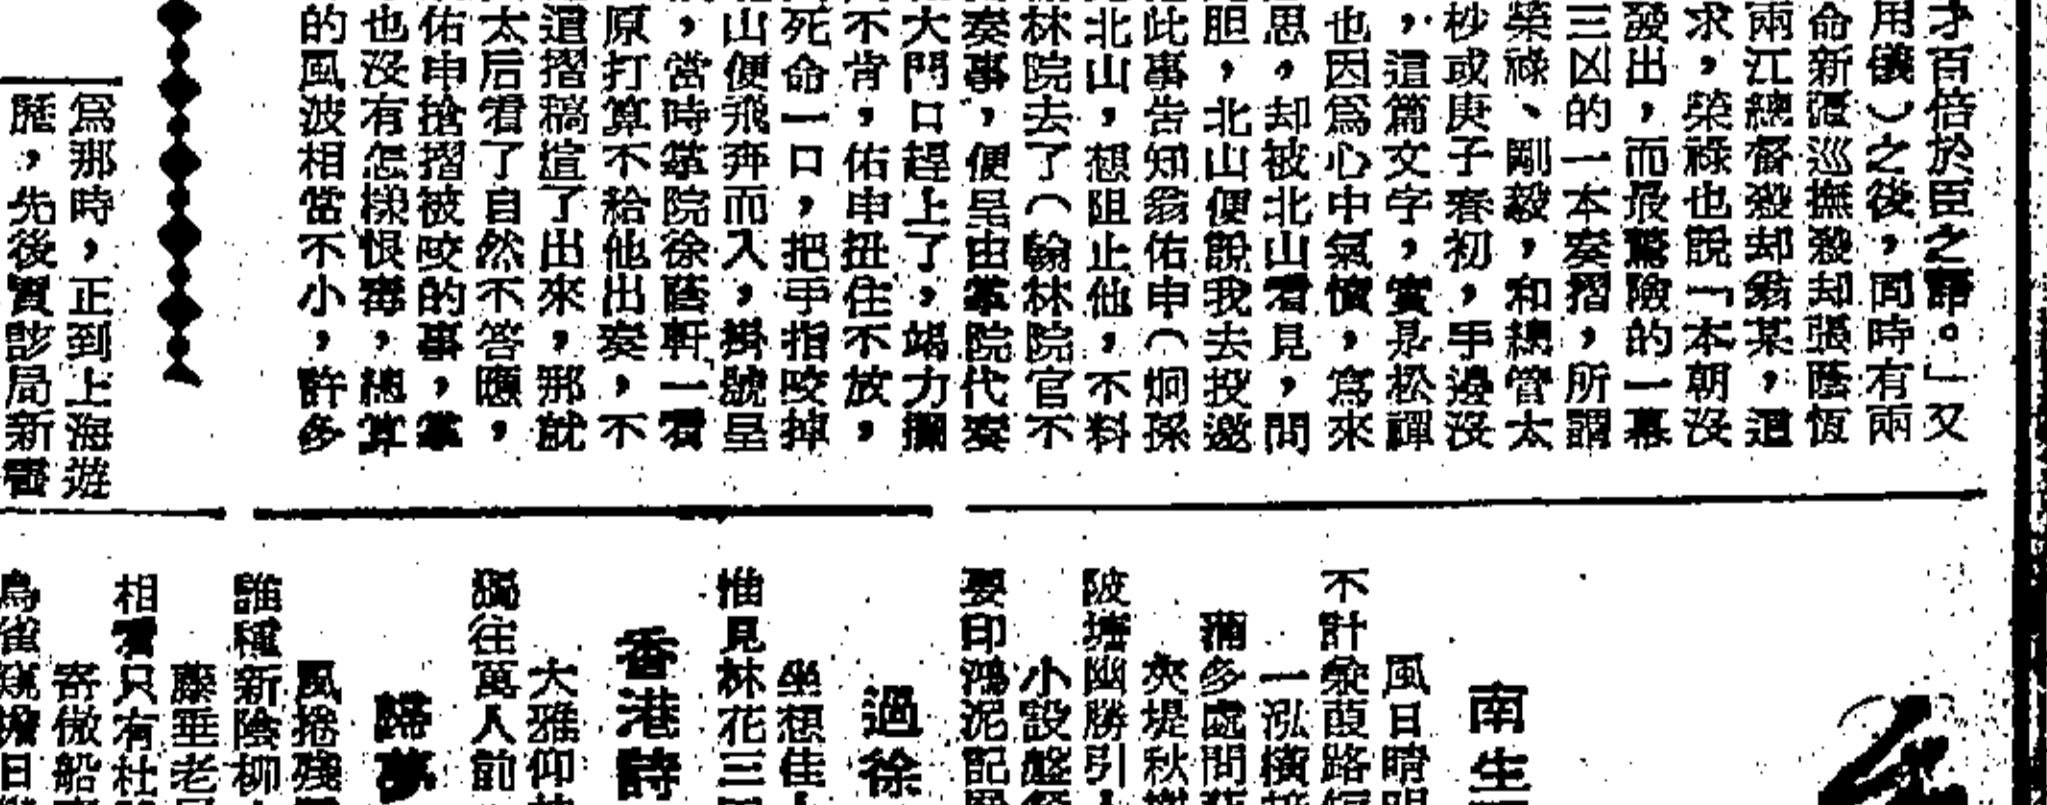 才百倍於臣之語。」又
用儀）之後，同時有兩
命新疆巡撫殺却張蔭恆
兩江總督殺却翁某，這
求，榮祿也說「本朝沒
發出，而最驚險的一幕
三凶的一本奏摺，所謂
榮祿、剛毅，和總管太
杪或庚子春初，手邊沒
，這篇文字，實是松禪
也因爲心中氣憤，寫來
思，却被北山看見，問
胆，北山便說我去投邀
此事告知翁佑申（炯孫
北山，想阻止他，不料
林院去了（翰林院官不
奏事，便呈由掌院代奏
大門口趕上了，竭力攔
不肯，佑申扭住不放，
死命一口，把手指咬掉
山便飛奔而入，掛號呈
，當時掌院徐蔭軒一看
原打算不給他出奏，不
這摺稿這了出來，那就
太后看了自然不答應，
佑申搶摺被咬的事，掌
也沒有怎樣恨毒，總算
的風波相當不小，許多
爲那時，正到上海遊
歷，先後買該局新書
南生
風日晴明
不計蒹葭路
一泓橫
多處問
夾堤秋
陂塘幽勝引
小設盤
要印鴻泥記
過徐
坐想佳
惟見林花三
香港詩
大雅仰
獨往萬人前
歸夢
風捲殘
誰種新陰柳
藤垂老
相看只有杜
寄傲船
鳥雀窺簷日